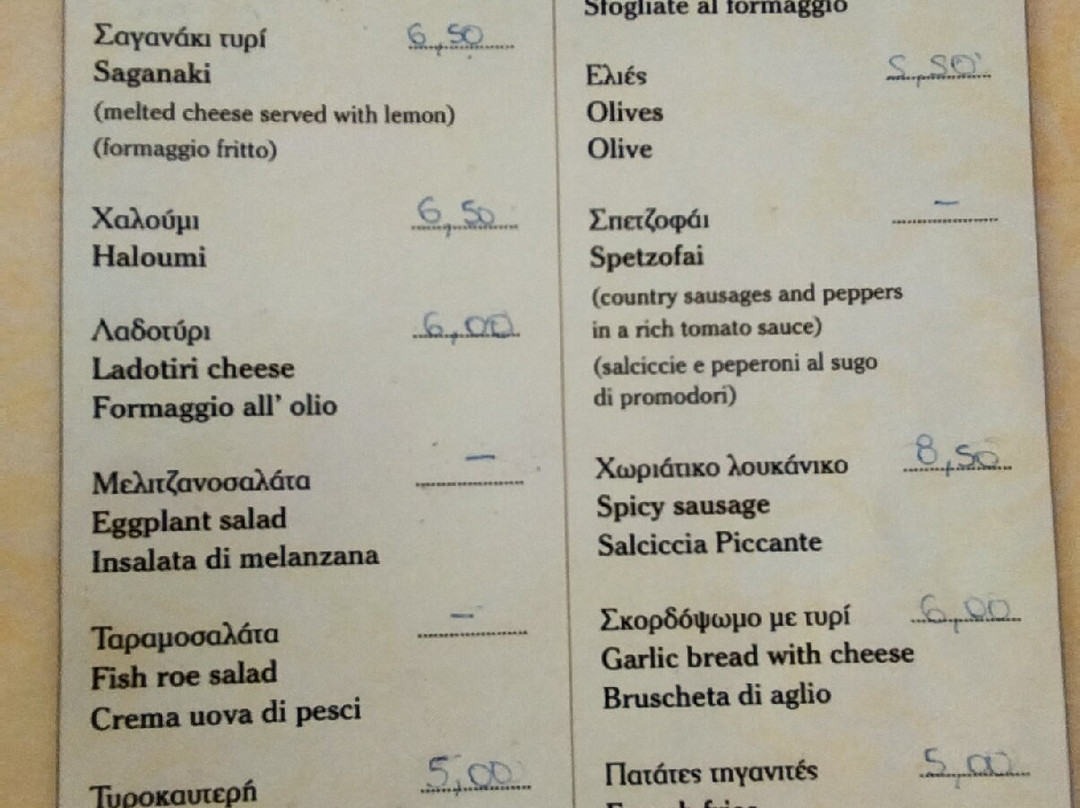 Σαγανάκι τυρί 6,50
Saganaki
(melted cheese served with lemon)
(formaggio fritto)
Χαλούμι 6,50
Haloumi
Λαδοτύρι 6,00
Ladotiri cheese
Formaggio all' olio
Μελιτζανοσαλάτα –
Eggplant salad
Insalata di melanzana
Ταραμοσαλάτα –
Fish roe salad
Crema uova di pesci
Τυροκαυτερή 5,00
Sfogliate al formaggio
Ελιές
Olives
Olive
Σπετζοφάι –
Spetzofai
(country sausages and peppers
in a rich tomato sauce)
(salciccie e peperoni al sugo
di promodori)
Χωριάτικο λουκάνικο 8,50
Spicy sausage
Salciccia Piccante
Σκορδόψωμο με τυρί 6,00
Garlic bread with cheese
Bruscheta di aglio
Πατάτες τηγανιτές 5,00